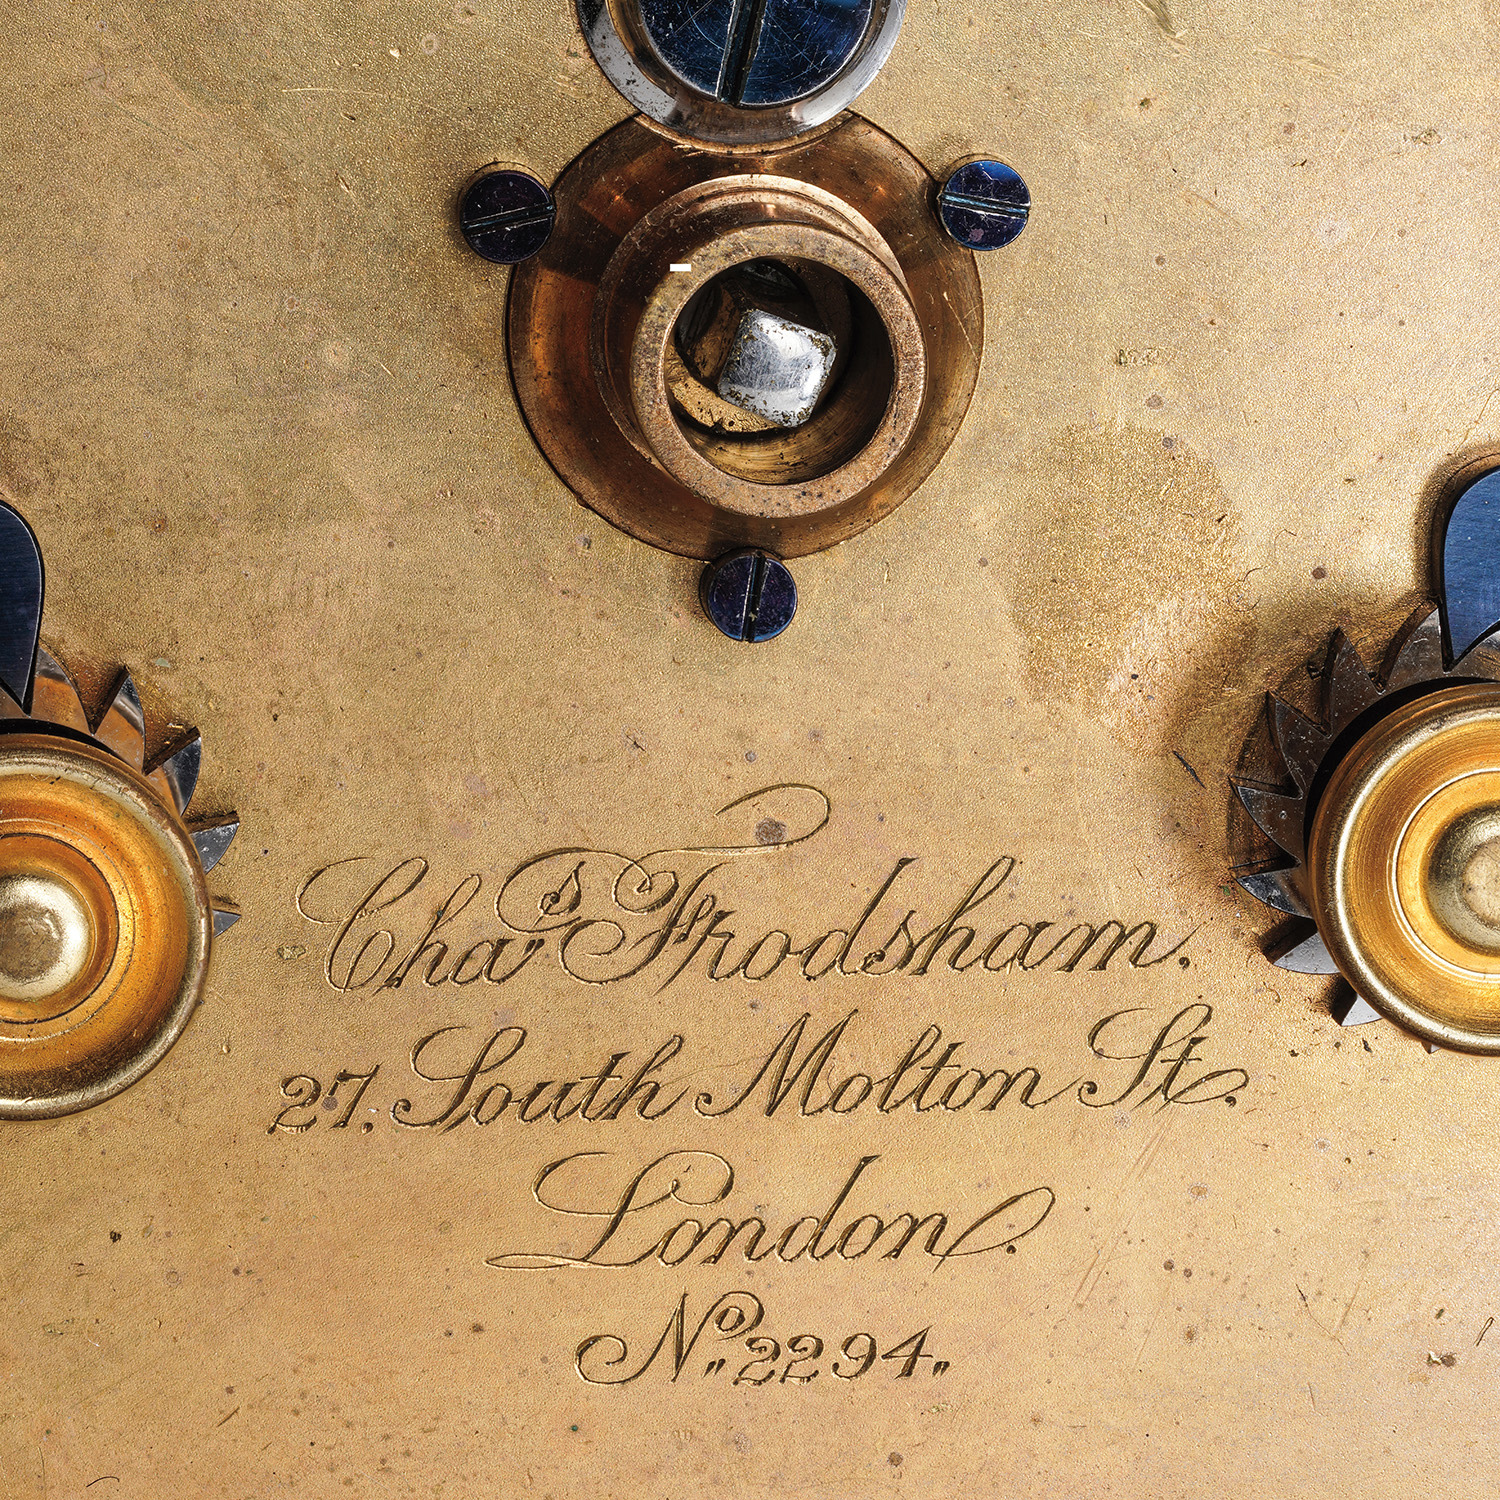 Chas Frodsham.
27. South Molton St.
London.
No. 2294.